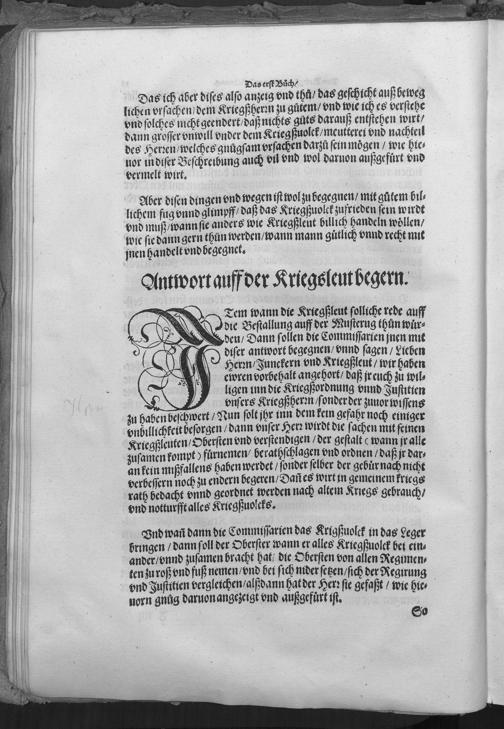 Das erst Bůch/
Das ich aber dises also anzeig vnd thů/ das geschicht auß beweg
lichen vrsachen/ dem Kriegßherrn zu gůtem/ vnd wie ich es verstehe
vnd solches nicht geendert/ daß nichts gůts darauß entstehen wirt/
dann grosser vnwill vnder dem Kriegßuolck/ meutterei vnd nachteil
des Herren/ welches gnůgsam vrsachen darzů sein mögen/ wie hie-
uor in diser Beschreibung auch vil vnd wol daruon außgefürt vnd
vermelt wirt.
Aber disen dingen vnd wegen ist wol zu begegnen/ mit gůtem bil-
lichem fug vnnd glimpff/ daß das Kriegßuolck zufrieden sein wirdt
vnd muß/ wann sie anders wie Kriegßleut billich handeln wöllen/
wie sie dann gern thůn werden/ wann mann gůtlich vnnd recht mit
jnen handelt vnd begegnet.
Antwort auff der Kriegsleut begern.
ITem wann die Kriegßleut solliche rede auff
die Bestallung auff der Musterug thůn wür-
den/ Dann sollen die Commissarien jnen mit
diser antwort begegnen/ vnnd sagen/ Lieben
Herrn/ Junckern vnd Kriegßleut/ wir haben
ewren vorbehalt angehört/ daß jr euch zu wil-
ligen inn die Kriegßordnung vnnd Justitien
vnsers Kriegßherrn/ sonder der zuuor wissens
zu haben beschwert/ Nun solt jhr inn dem kein gefahr noch einiger
vnbillichkeit besorgen/ dann vnser Herr wirdt die sachen mit seinen
Kriegßleuten/ Obersten vnd verstendigen/ der gestalt (wann jr alle
zusamen kompt) fürnemen/ berathschlagen vnd ordnen/ daß jr dar-
an kein mißfallens haben werdet/ sonder selber der gebür nach nicht
verbessern noch zu endern begeren/ Dañ es wirt in gemeinem kriegs
rath bedacht vnnd geordnet werden nach altem Kriegs gebrauch/
vnd notturfft alles Kriegßuolcks.
Vnd wañ dann die Commissarien das Krigßuolck in das Leger
bringen/ dann soll der Oberster wann er alles Kriegßuolck bei ein-
ander/ vnnd zusamen bracht hat/ die Obersten von allen Regimen-
ten zu roß vnd fuß nemen/ vnd bei sich nider setzen/ sich der Regirung
vnd Justitien vergleichen/ alßdann hat der Herr sie gefaßt/ wie hie-
uorn gnůg daruon angezeigt vnd außgefürt ist.
So